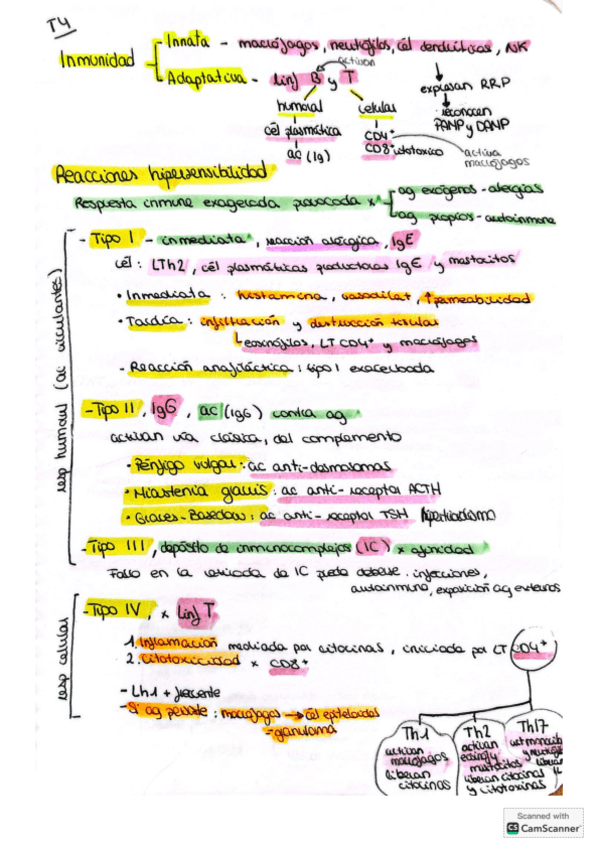 T4
Inmunidad
Innata - macrófagos, neutrófilos, cél dendríticas, NK
activan
Adaptativa - linf B y T
expresan RRP
humoral
celular
reconocen
PANP y DANP
cél plasmática
CD4+
ac (Ig)
CD8+ citotóxico
activa
macrófagos
Reacciones hipersensibilidad
Respuesta inmune exagerada provocada x
ag exógenos - alergias
ag propios - autoinmune
resp humoral (ac circulantes)
- Tipo I - inmediata, reacción alérgica, IgE
cél: LTh2, cél plasmáticas productoras IgE y mastocitos
• Inmediata : histamina, vasodilat, ↑permeabilidad
• Tardía : infiltración y destrucción tisular
eosinófilos, LT CD4+ y macrófagos
- Reacción anafiláctica : tipo I exacerbada
- Tipo II, IgG, ac (IgG) contra ag
activan vía clásica, del complemento
• Pénfigo vulgar : ac anti-desmosomas
• Miastenia gravis : ac anti-receptor ACTH
• Graves-Basedow : ac anti-receptor TSH hipertiroidismo
- Tipo III, depósito de inmunocomplejos (IC) x afinidad
Fallo en la retirada de IC puede deberse: infecciones,
autoinmune, exposición ag externos
resp celular
- Tipo IV, x linf T
1. Inflamación mediada por citocinas, iniciada por LT CD4+
2. Citotoxicidad x CD8+
- Lh1 + frecuente
- Si ag persiste : macrófagos → cél epiteloides
- granuloma
Th1
activan
macrófagos
liberan
citocinas
Th2
activan
eosinof y
mastocitos
liberan citocinas
y citotoxinas
Th17
y neutróf
Scanned with
CS CamScanner